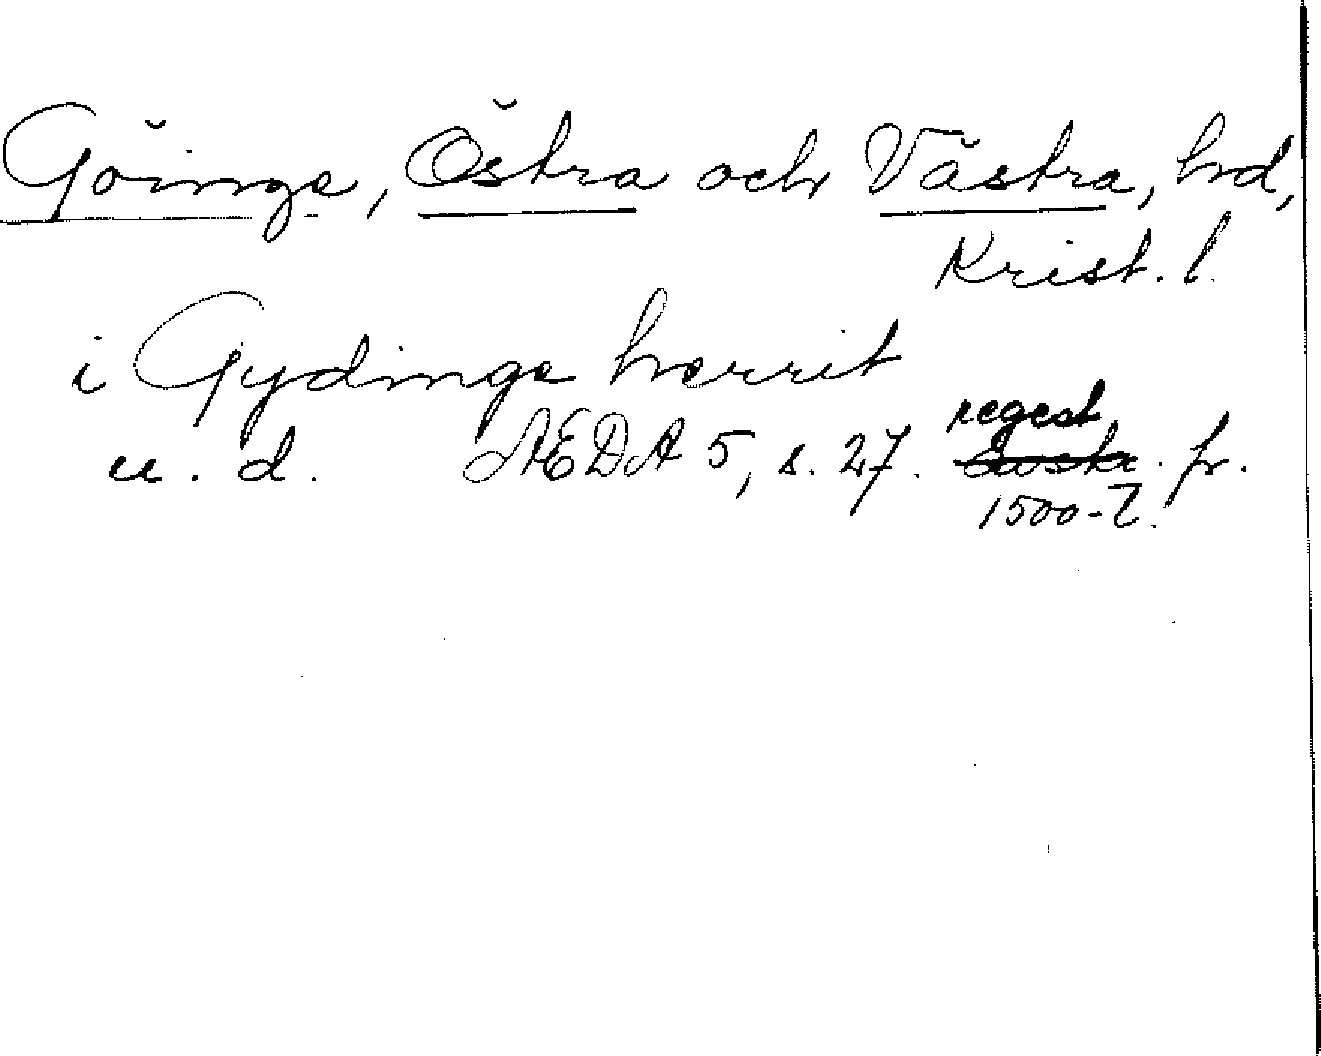 Göinge, Östra och Västra, hrd,
Krist. l.
i Gydinge herrit
regest
u. d. AEDA 5, s. 27. Avskr. fr.
1500-t.